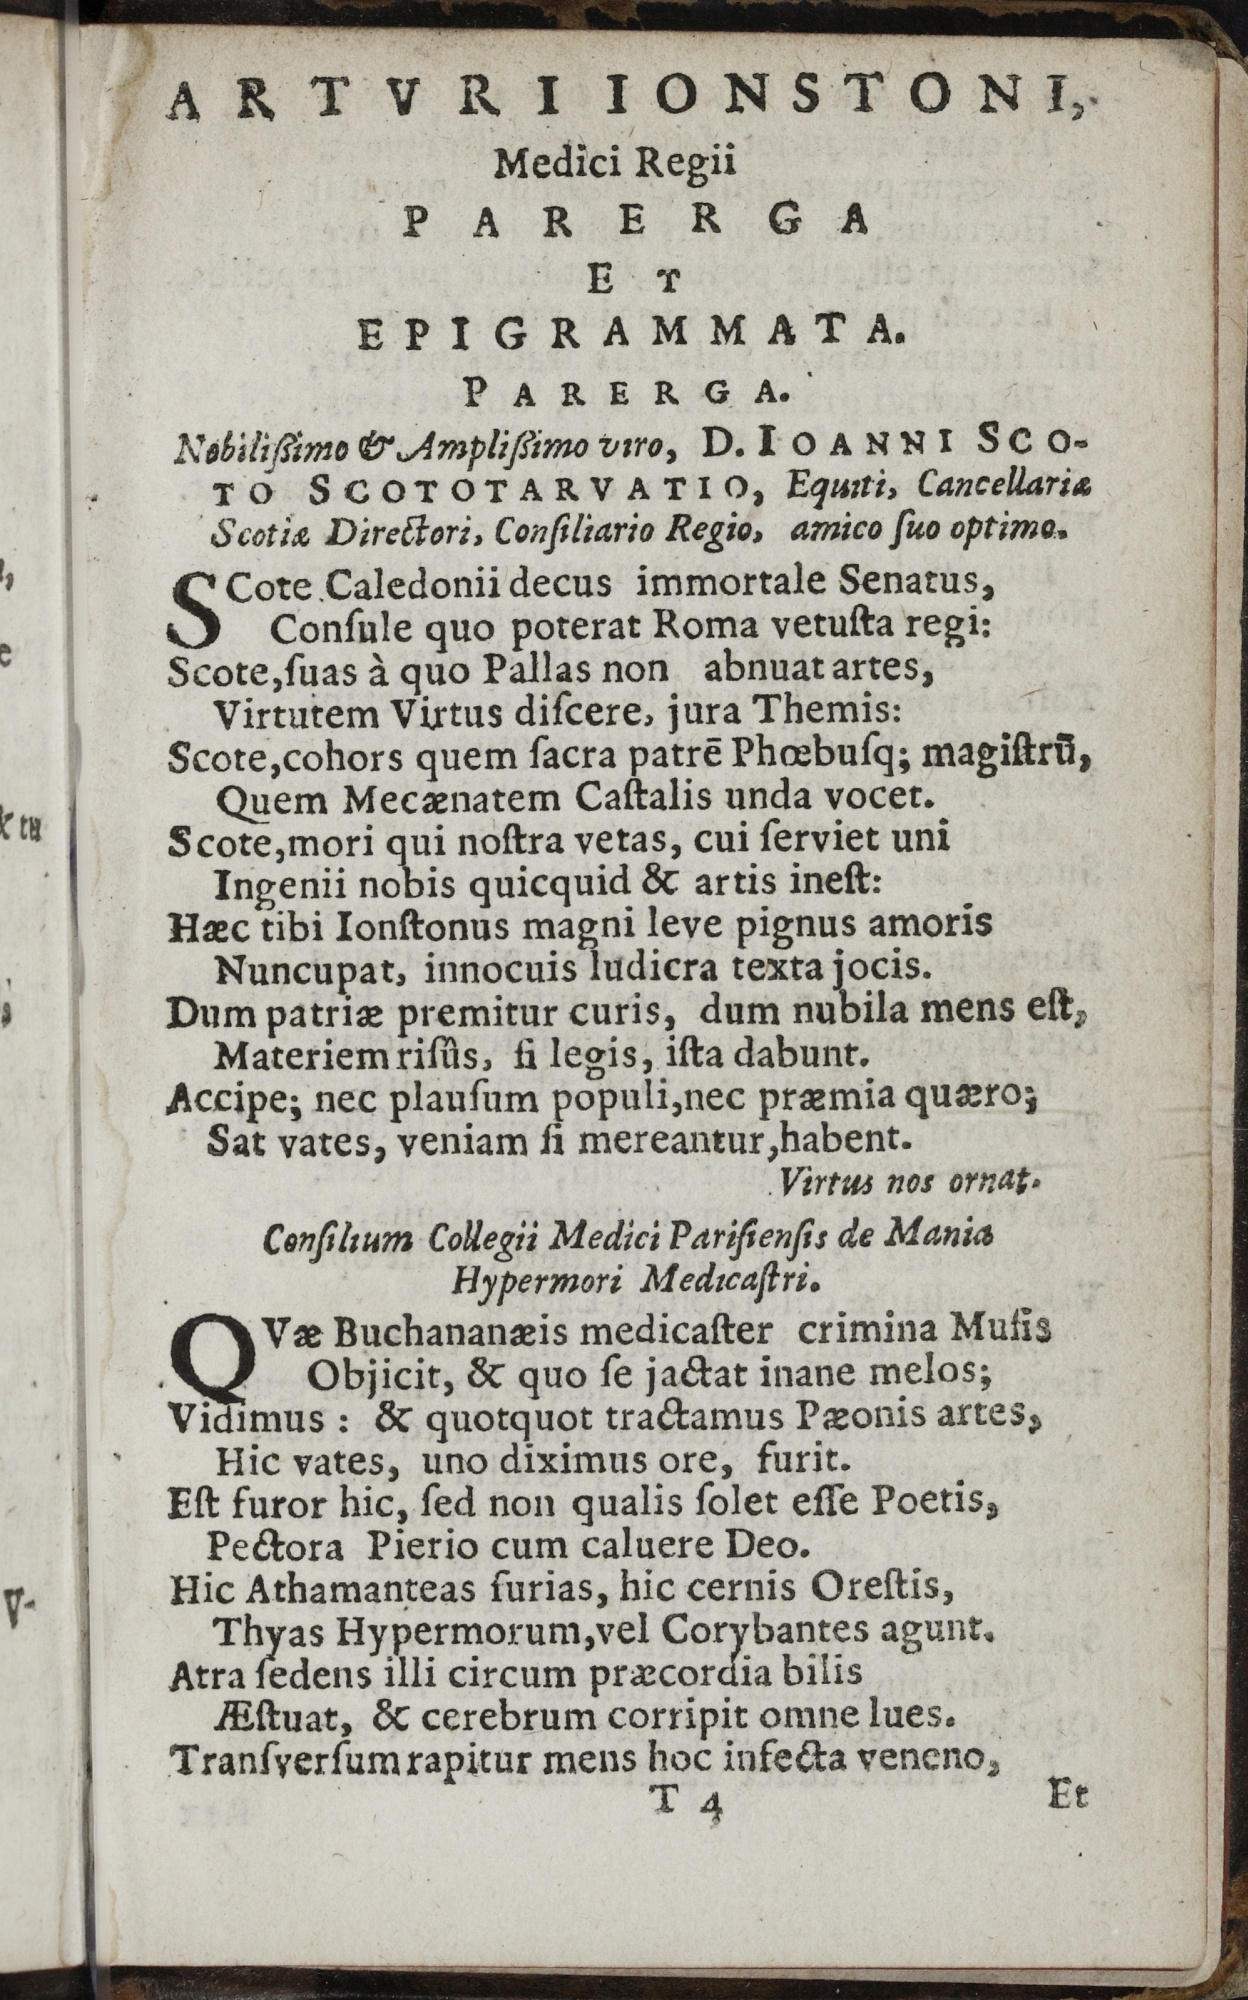 ARTVRI IONSTONI,
Medici Regii
PARERGA
ET
EPIGRAMMATA.
PARERGA.
Nobilißimo & Amplißimo viro, D. IOANNI SCO-
TO SCOTOTARVATIO, Equiti, Cancellariæ
Scotiæ Directori, Conſiliario Regio, amico ſuo optimo.
SCote Caledonii decus immortale Senatus,
Conſule quo poterat Roma vetuſta regi:
Scote, ſuas à quo Pallas non abnuat artes,
Virtutem Virtus diſcere, jura Themis:
Scote, cohors quem ſacra patrē Phœbuſq; magiſtrū,
Quem Mecænatem Caſtalis unda vocet.
Scote, mori qui noſtra vetas, cui ſerviet uni
Ingenii nobis quicquid & artis ineſt:
Hæc tibi Ionſtonus magni leve pignus amoris
Nuncupat, innocuis ludicra texta jocis.
Dum patriæ premitur curis, dum nubila mens eſt,
Materiem riſûs, ſi legis, iſta dabunt.
Accipe; nec plauſum populi, nec præmia quæro;
Sat vates, veniam ſi mereantur, habent.
Virtus nos ornat.
Conſilium Collegii Medici Pariſienſis de Mania
Hypermori Medicaſtri.
QVæ Buchananæis medicaſter crimina Muſis
Objicit, & quo ſe jactat inane melos;
Vidimus: & quotquot tractamus Pæonis artes,
Hic vates, uno diximus ore, furit.
Eſt furor hic, ſed non qualis ſolet eſſe Poetis,
Pectora Pierio cum caluere Deo.
Hic Athamanteas furias, hic cernis Oreſtis,
Thyas Hypermorum, vel Corybantes agunt.
Atra ſedens illi circum præcordia bilis
Æſtuat, & cerebrum corripit omne lues.
Tranſverſum rapitur mens hoc infecta veneno,
T 4
Et